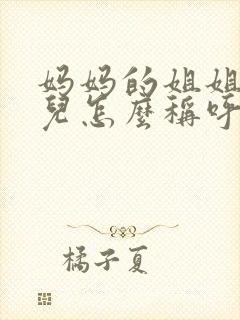 妈妈的姐姐
兒怎麼稱呼
橘子夏